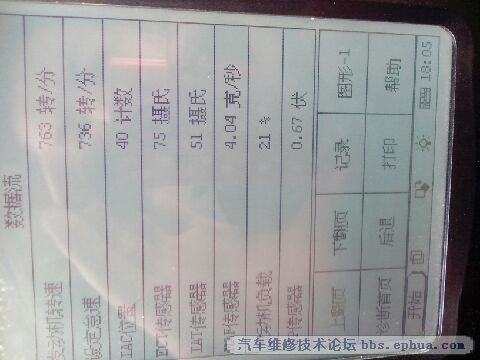 数据流
发动机转速 763 转/分
设定怠速 736 转/分
IAC位置 40 计数
ECT传感器 75 摄氏
IAT传感器 51 摄氏
传感器 4.04 克/秒
发动机负载 21 %
传感器 0.67 伏
上翻页 下翻页 记录 图形-1
诊断首页 后退 打印 帮助
开始 18:05
汽车维修技术论坛 bbs.ephua.com